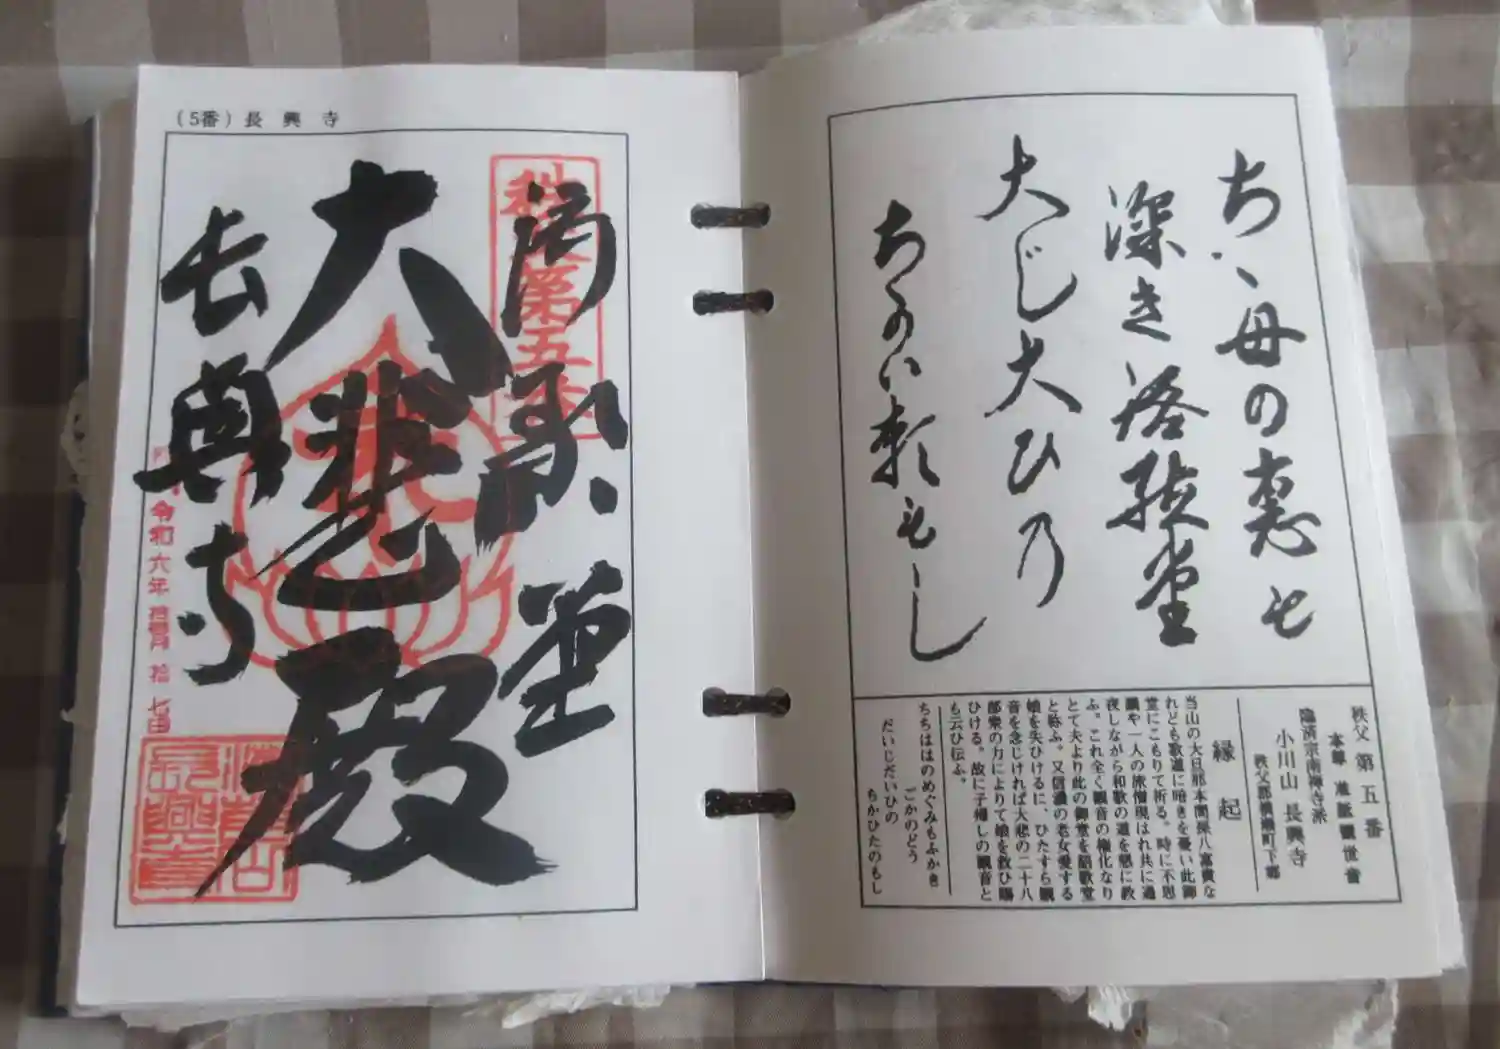 ちゝ母の恵も
深き語歌堂
大じ大ひ乃
ちかひ頼もし
秩父第五番
本尊 准胝観世音
臨済宗南禅寺派
小川山 長興寺
秩父郡横瀬町下郷
縁起
当山の大旦那本間孫八富貴な
れども歌道に暗きを憂い此御
堂にこもりて祈る。時に不思
議や一人の旅僧現はれ共に通
夜しながら和歌の道を懇に教
ふ。これ全く観音の権化なり
とて夫より此の御堂を語歌堂
と称ふ。又信濃の老女愛する
娘を失ひけるに、ひたすら観
音を念じければ大悲の二十八
部衆の力によりて娘を救ひ賜
ひける。故に子帰しの観音と
も云ひ伝ふ。
ちちははのめぐみもふかき
ごかのどう
だいじだいひの
ちかひたのもし
(5番)長興寺
秩父第五番
語歌堂
大悲殿
長興寺
令和六年拾壹月拾七日
長興寺